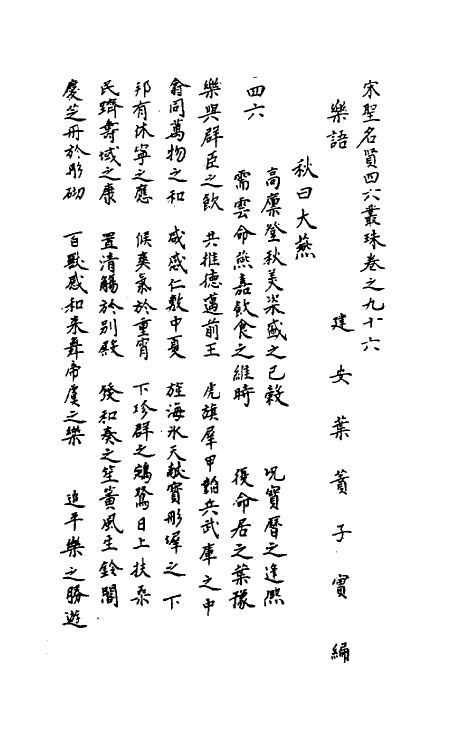 宋聖名賢四六叢珠卷之九十六
樂語　建安葉蕡子實編
秋日大燕
四六
高廩登秋美粢盛之已穀　況寶曆之逢熙
需雲命燕嘉飲食之維時　復命居之葉豫
樂與群臣之飲　共推德邁前王　虎旗犀甲韜兵武庫之中
翕同萬物之和　咸感仁敷中夏　旌海氷天獻寶彤墀之下
邦有休寧之應　候爽氣於重霄　下珍群之鵷鷺日上扶桑
民躋壽域之康　置清觴於別殿　發和奏之笙簧風生鈴閣
慶芝冊於彤砌　百獸感和来舞帝虞之樂　追平樂之勝遊